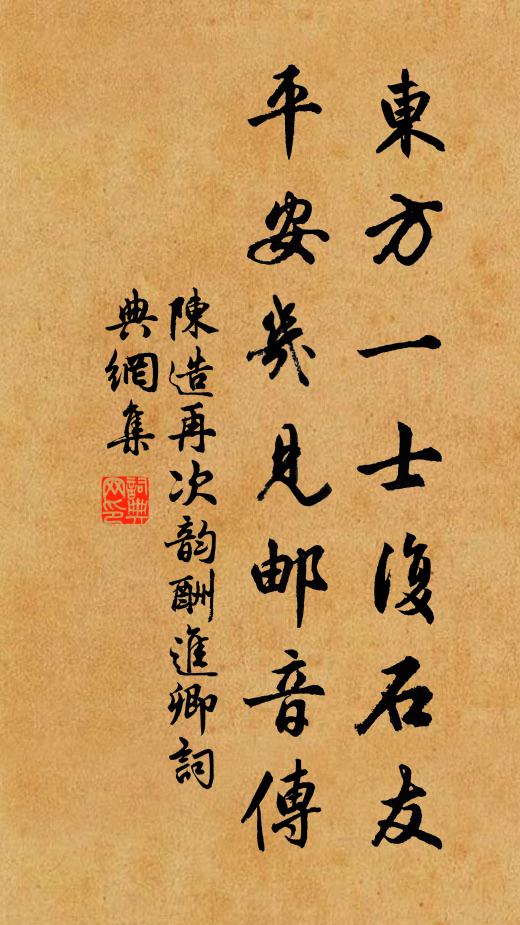 東方一士復石友
平安幾見邮音傳
陳造再次韵酬進卿詞
典網集
詞典網印